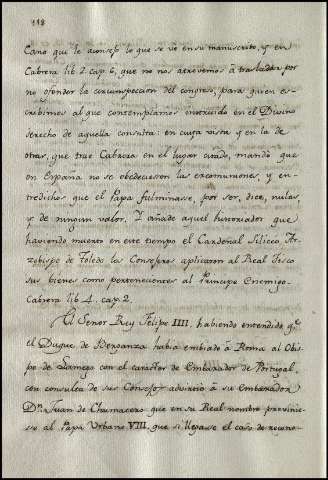 118
Cano que le aconsejo lo que se ve en su manuscrito, y en
Cabrera lib 2. cap 6, que no nos atrevemos à trasladar por
no ofender la circunspeccion del congreso, para quien es-
cribimos al que contemplamos instruido en el Divino
derecho de aquella consulta: en cuya vista y en la de
otras, que trae Cabrera en el lugar citado, mandò que
en España no se obedeciesen las excomuniones, y en-
tredichos que el Papa fulminase, por ser, dice, nulas,
y de ningun valor. Y añade aquel historiador que
haviendo muerto en este tiempo el Cardenal Siliceo Ar-
zobispo de Toledo los Consejeros aplicaron al Real Fisco
sus bienes como pertenecientes al Principe Enemigo.
Cabrera lib 4. cap. 2.
El Señor Rey Felipe IIII, habiendo entendido q.e
el Duque de Berganza habia embiado à Roma al Obis
po de Lamego con el caracter de Embaxador de Portugal,
con consulta de sus Consejos advirtio à su Embaxador
D.n Juan de Chumacero que en su Real nombre previnie
se al Papa Urbano VIII. que si llegase el caso de recono-